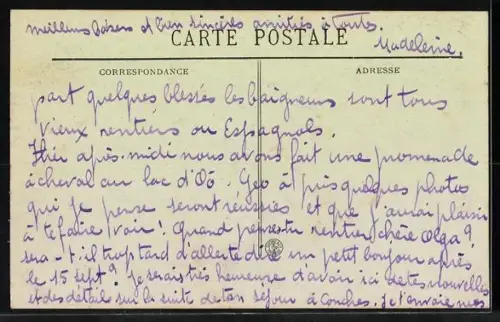 meilleurs baisers et bien sincères amitiés à toutes.
CARTE POSTALE
Madeleine.
CORRESPONDANCE
ADRESSE
part quelques blessés les baigneurs sont tous
vieux rentiers ou Espagnols.
Hier après-midi nous avons fait une promenade
à cheval au lac d'Oô. Geo à pris quelques photos
qui je pense seront réussies et que j'aurai plaisir
à te faire voir! Quand penses tu rentrer chère Olga?
sera-t-il trop tard d'aller te dire un petit bonjour après
le 15 sept? Je serais très heureuse d'avoir ici de tes nouvelles
et des détail sur la suite de ton séjour à Conches. Je t'envoie mes